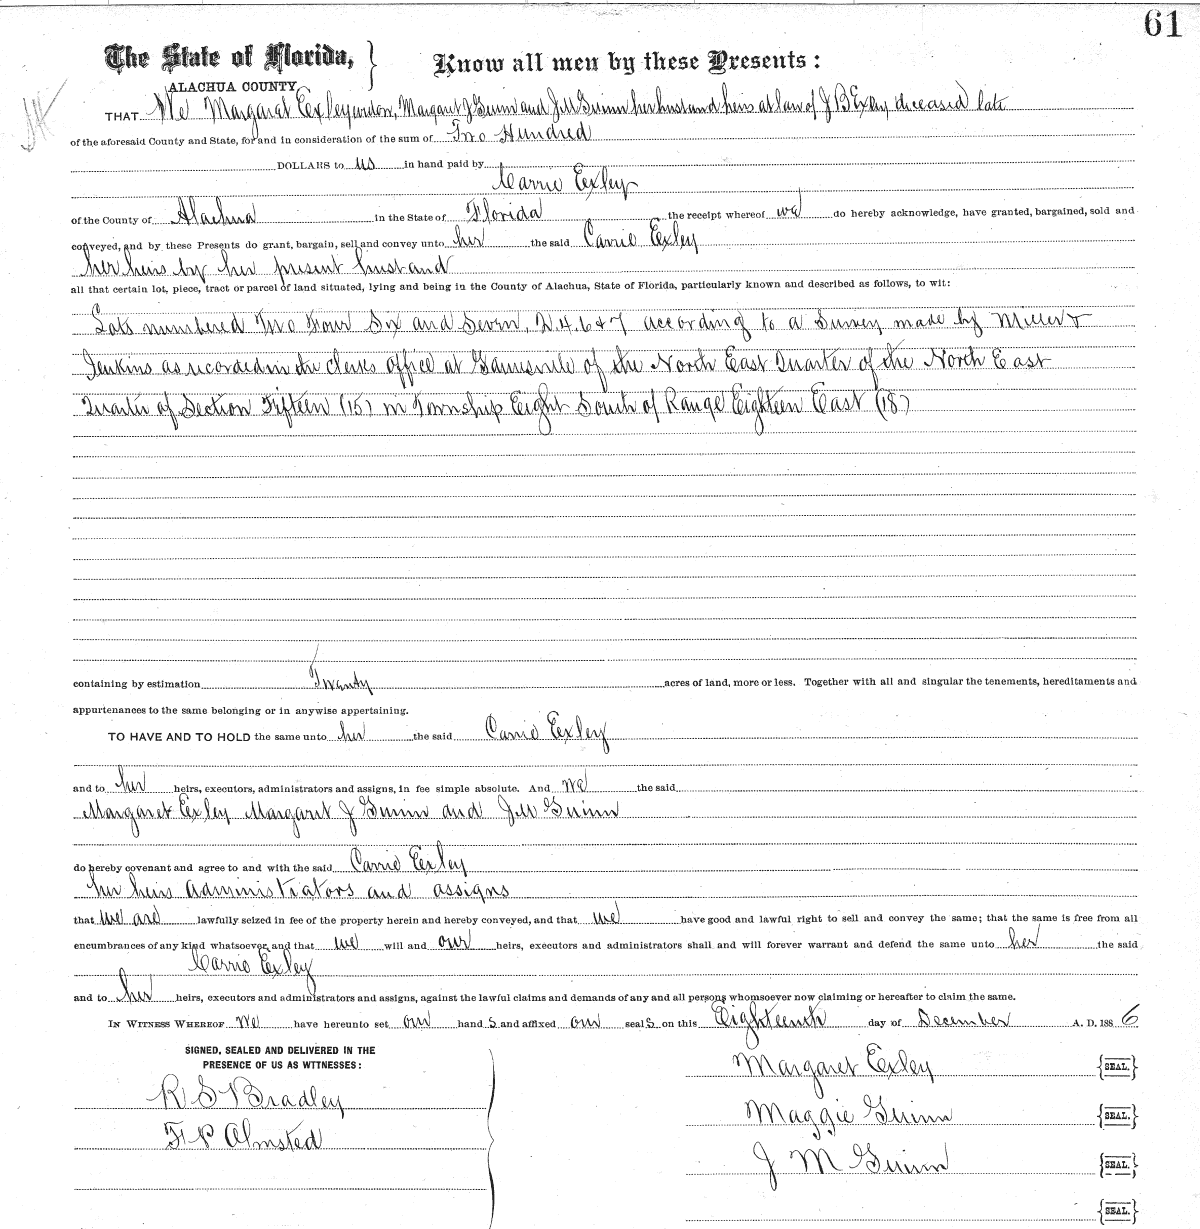 61
The State of Florida, } Know all men by these Presents :
ALACHUA COUNTY
THAT We Margaret Exley widow, Margaret J Guinn and J M Guinn her husband heirs at law of J B Exley deceased late
of the aforesaid County and State, for and in consideration of the sum of Two Hundred
DOLLARS to us in hand paid by
Carrie Exley
of the County of Alachua in the State of Florida the receipt whereof we do hereby acknowledge, have granted, bargained, sold and
conveyed, and by these Presents do grant, bargain, sell and convey unto her the said Carrie Exley
her heirs by her present husband
all that certain lot, piece, tract or parcel of land situated, lying and being in the County of Alachua, State of Florida, particularly known and described as follows, to wit:
Lots numbered Two Four Six and Seven, 2. 4. 6 & 7 according to a Survey made by Miller &
Jenkins as recorded in the clerks office at Gainesville of the North East Quarter of the North East
Quarter of Section Fifteen (15) in Township Eight South of Range Eighteen East (18)
containing by estimation Twenty acres of land, more or less. Together with all and singular the tenements, hereditaments and
appurtenances to the same belonging or in anywise appertaining.
TO HAVE AND TO HOLD the same unto her the said Carrie Exley
and to her heirs, executors, administrators and assigns, in fee simple absolute. And we the said
Margaret Exley Margaret J Guinn and J M Guinn
do hereby covenant and agree to and with the said Carrie Exley
her heirs administrators and assigns
that we are lawfully seized in fee of the property herein and hereby conveyed, and that we have good and lawful right to sell and convey the same; that the same is free from all
encumbrances of any kind whatsoever and that we will and our heirs, executors and administrators shall and will forever warrant and defend the same unto her the said
Carrie Exley
and to her heirs, executors and administrators and assigns, against the lawful claims and demands of any and all persons whomsoever now claiming or hereafter to claim the same.
IN WITNESS WHEREOF We have hereunto set our hand s and affixed our seal s on this Eighteenth day of December A. D. 188 6
SIGNED, SEALED AND DELIVERED IN THE
PRESENCE OF US AS WITNESSES:
R S Bradley
F P Olmsted
Margaret Exley {SEAL.}
Maggie Guinn {SEAL.}
J M Guinn {SEAL.}
{SEAL.}